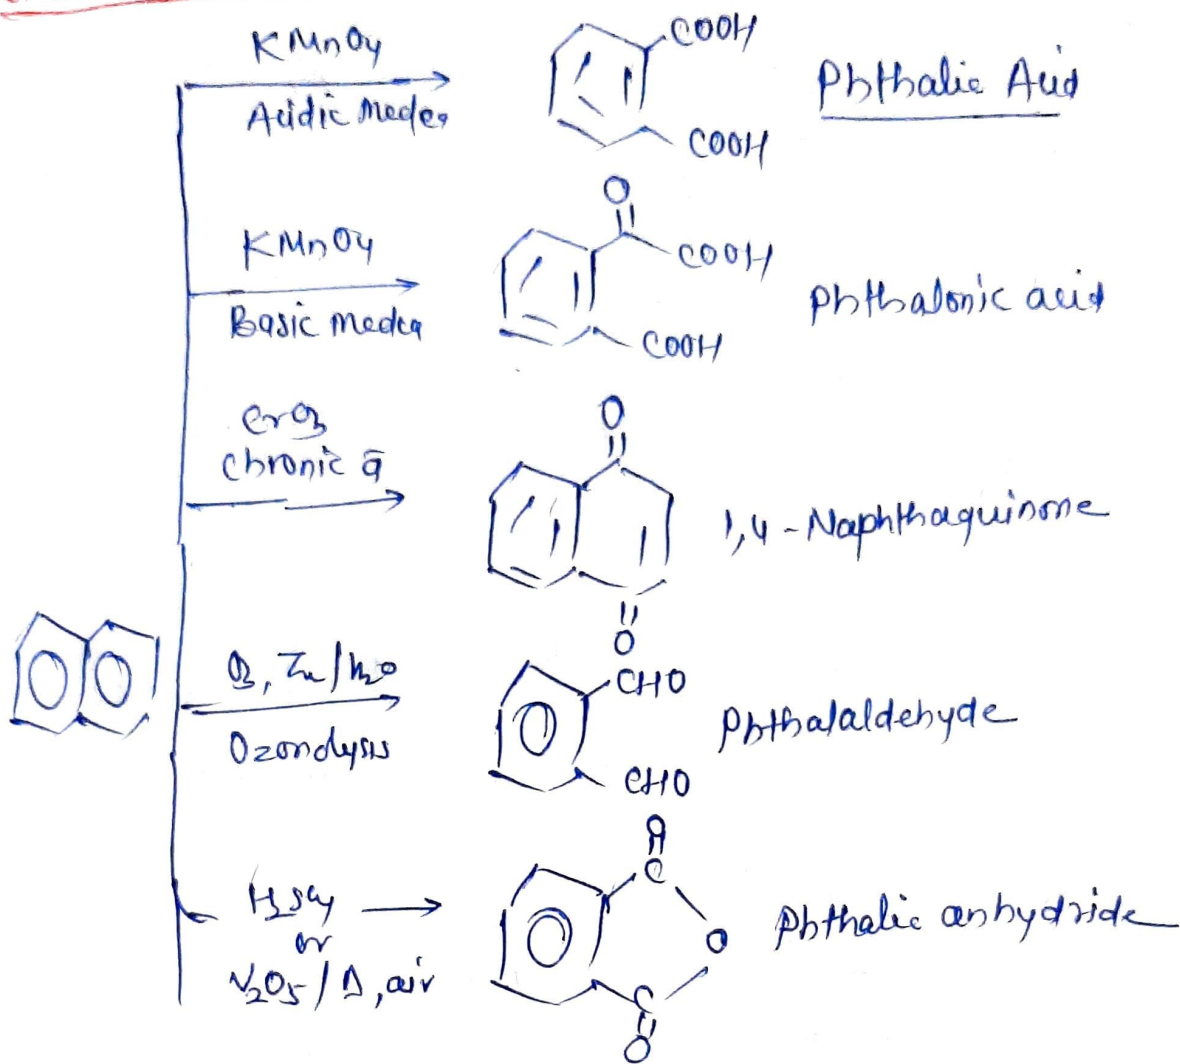 KMnO4
Acidic Media
COOH
COOH
Phthalic Acid
KMnO4
Basic media
O
COOH
COOH
Phthalonic acid
CrO3
Chromic a
O
O
1,4-Naphthaquinone
O3, Zn/H2O
Ozonolysis
CHO
CHO
Phthalaldehyde
H2SO4
or
V2O5/Δ, air
O
C
O
C
O
Phthalic anhydride